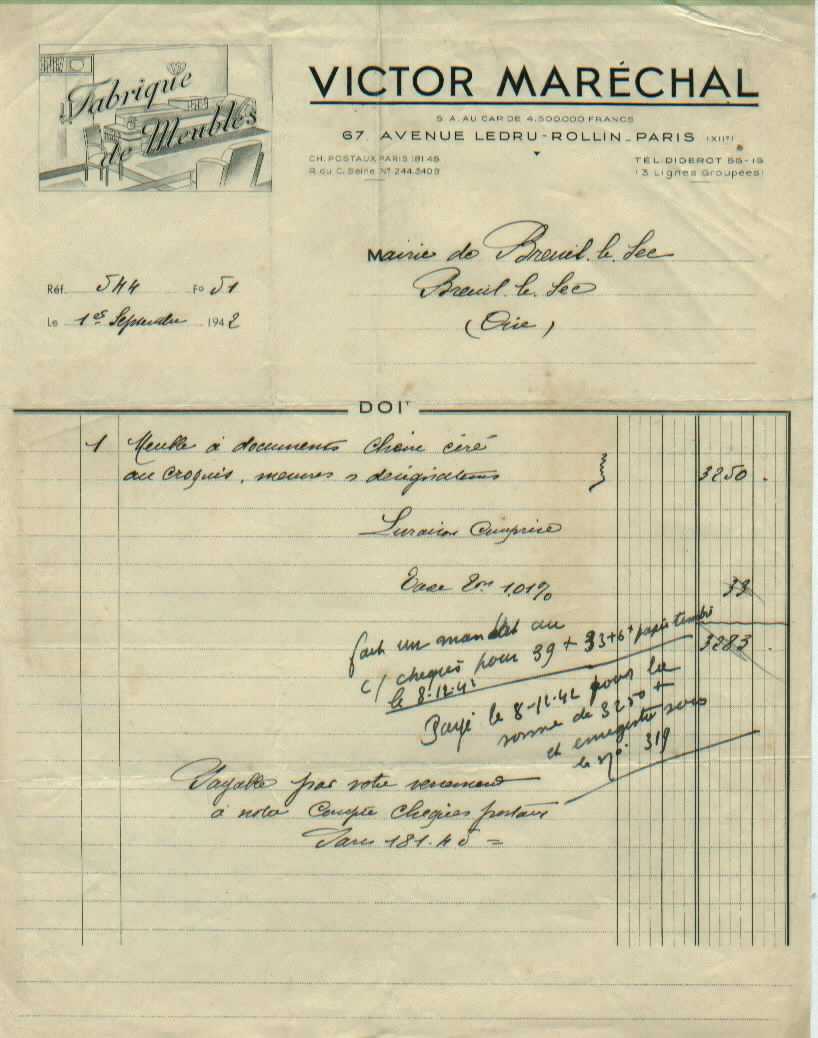 Fabrique
de Meubles
VICTOR MARÉCHAL
S.A. AU CAP. DE 4.500.000 FRANCS
67, AVENUE LEDRU-ROLLIN_PARIS (XIIe)
CH. POSTAUX PARIS 181-45
R. du C. Seine No 244.3409
TÉL. DIDEROT 55-15
(3 Lignes Groupées)
Mairie de Breuil-le-Sec
Breuil-le-Sec
(Oise)
Réf. 544 Fo 51
Le 1er Septembre 1942
DOIT
1 Meuble à documents chêne ciré
au croquis, mesures désignations 3250.
Livraison comprise
Taxe 1,01% 33
3283.
fait un mandat au
c/ chèques pour 39 + 33+6+ papier timbré
le 8-12-42
Payé le 8-12-42 pour la
somme de 3250 +
et enregistré sous
le No. 319
Payable par votre versement
à notre Compte chèques postaux
Paris 181.45 =